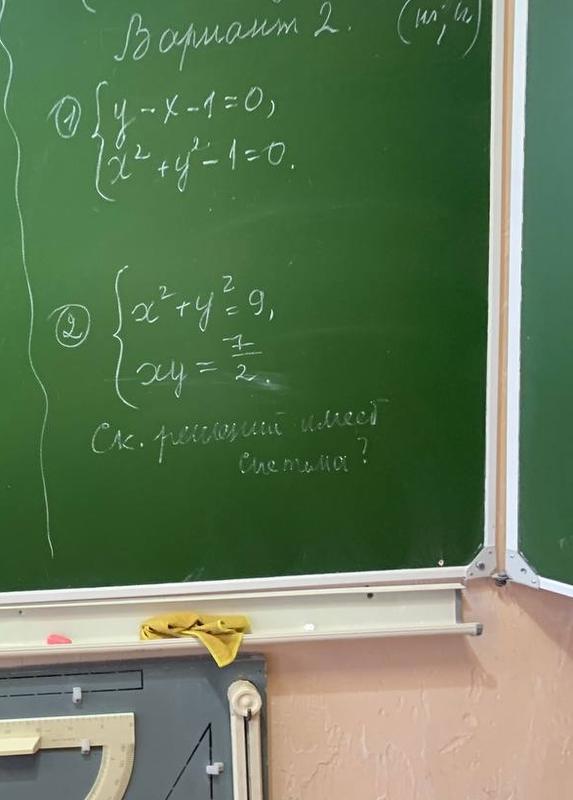 Вариант 2.
① { y - x - 1 = 0,
x² + y² - 1 = 0.
② { x² + y² = 9,
xy = 7/2.
Ск. решений имеет
система?